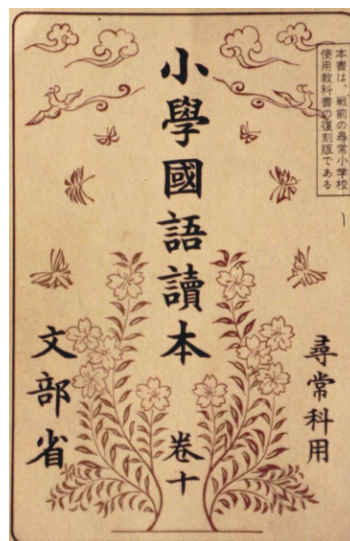 本書は、戦前の尋常小学校
使用教科書の復刻版である
小學國語讀本
卷十
尋常科用
文部省